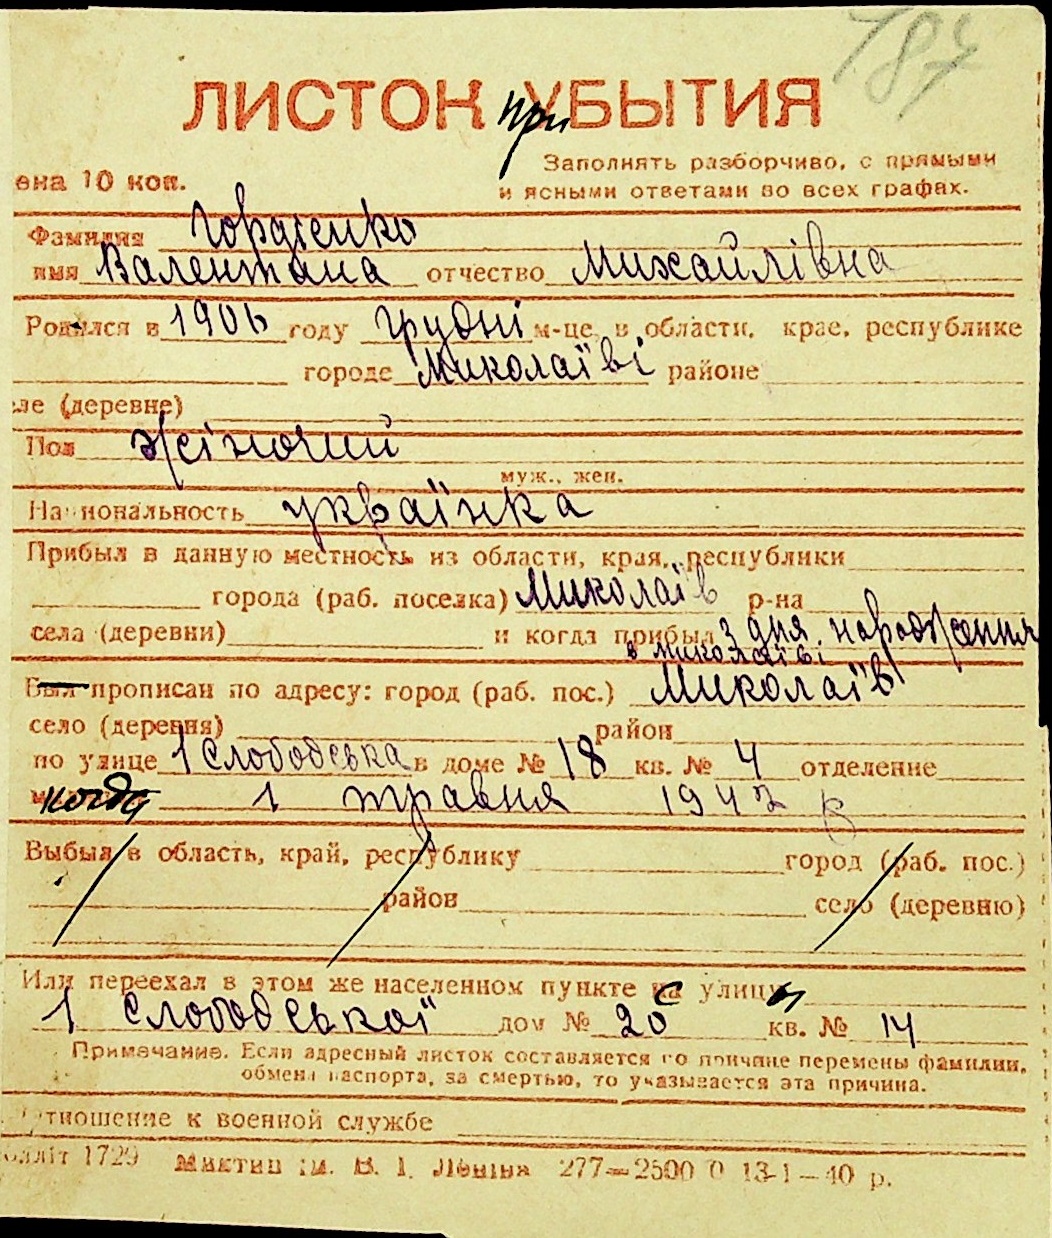 187
ЛИСТОК при УБЫТИЯ
Заполнять разборчиво, с прямыми
ена 10 коп. и ясными ответами во всех графах.
Фамилия Гордієнко
имя Валентина отчество Михайлівна
Родился в 1906 году грудні м-це, в области, крае, республике
городе Миколаїві районе
ле (деревне)
Пол жіночий
муж., жен.
Национальность українка
Прибыл в данную местность из области, края, республики
города (раб. поселка) Миколаїв р-на
села (деревни) и когда прибыл з дня народження
в Миколаїві
Был прописан по адресу: город (раб. пос.) Миколаїв
село (деревня) район
по улице 1 Слободська в доме № 18 кв. № 4 отделение
когда 1 травня 1942 р
Выбыл в область, край, республику город (раб. пос.)
район село (деревню)
Или переехал в этом же населенном пункте с улицы
1 Слободської дом № 20 кв. № 14
Примечание. Если адресный листок составляется по причине перемены фамилии,
обмена паспорта, за смертью, то указывается эта причина.
Отношение к военной службе
олліт 1729 Миктип ім. В. І. Леніна 277—2500 0 13-1—40 р.